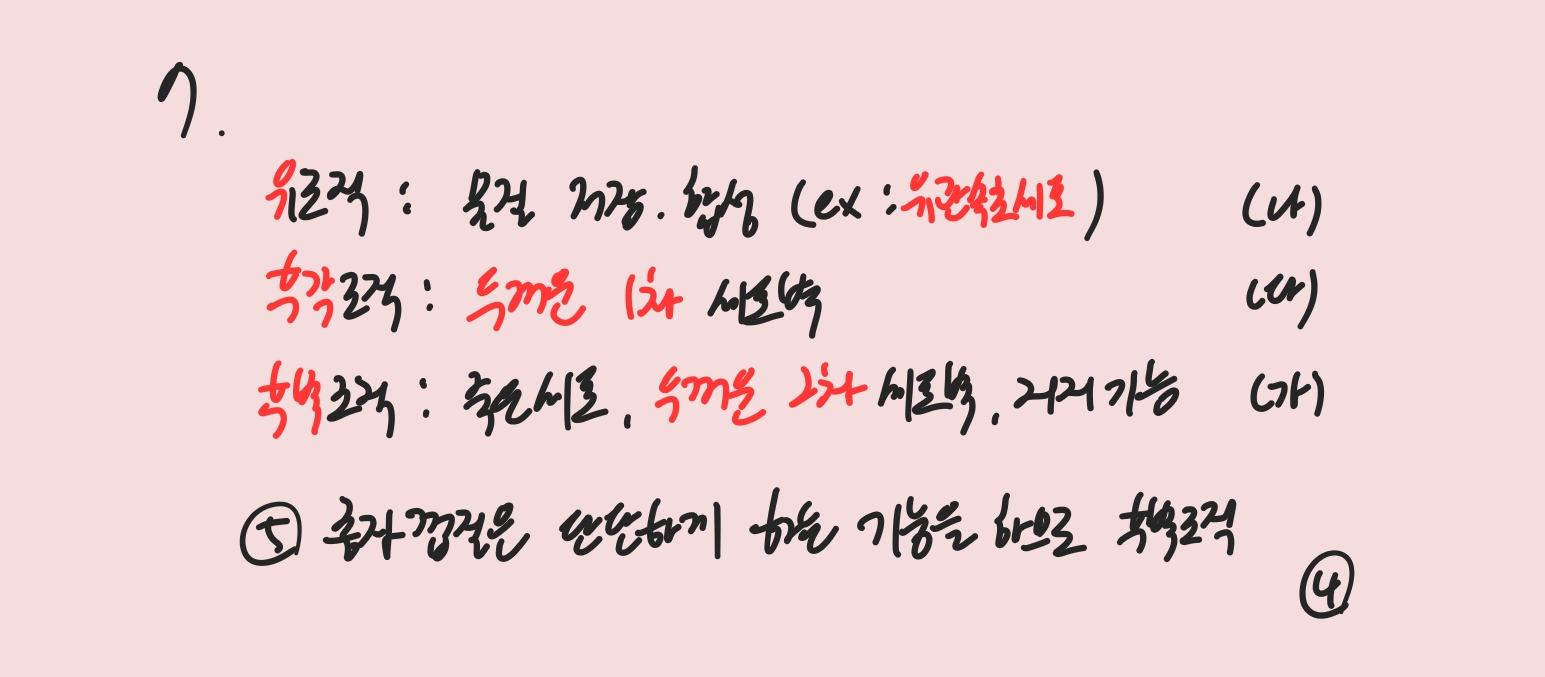 7.
유조직 : 물질 저장. 합성 (ex : 유관속초세포) (나)
후각조직 : 두꺼운 1차 세포벽 (다)
후벽조직 : 죽은세포, 두꺼운 2차 세포벽, 지지 기능 (가)
⑤ 종자껍질은 단단하게 하는 기능을 하므로 후벽조직
④